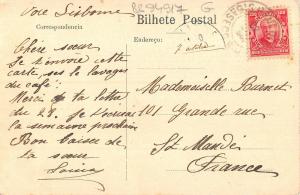 Voie Lisbonne
Bilhete Postal
8294917 G
Correspondencia
Endereço:
Chère sœur
Je t'envoie cette
carte, sur le lavage
du café.
Merci de ta lettre
du 28. Je t'écrirai
la semaine prochaine
Bon baiser de
ta sœur
Mademoiselle Burnet
101 Grande rue
St Mandé
France